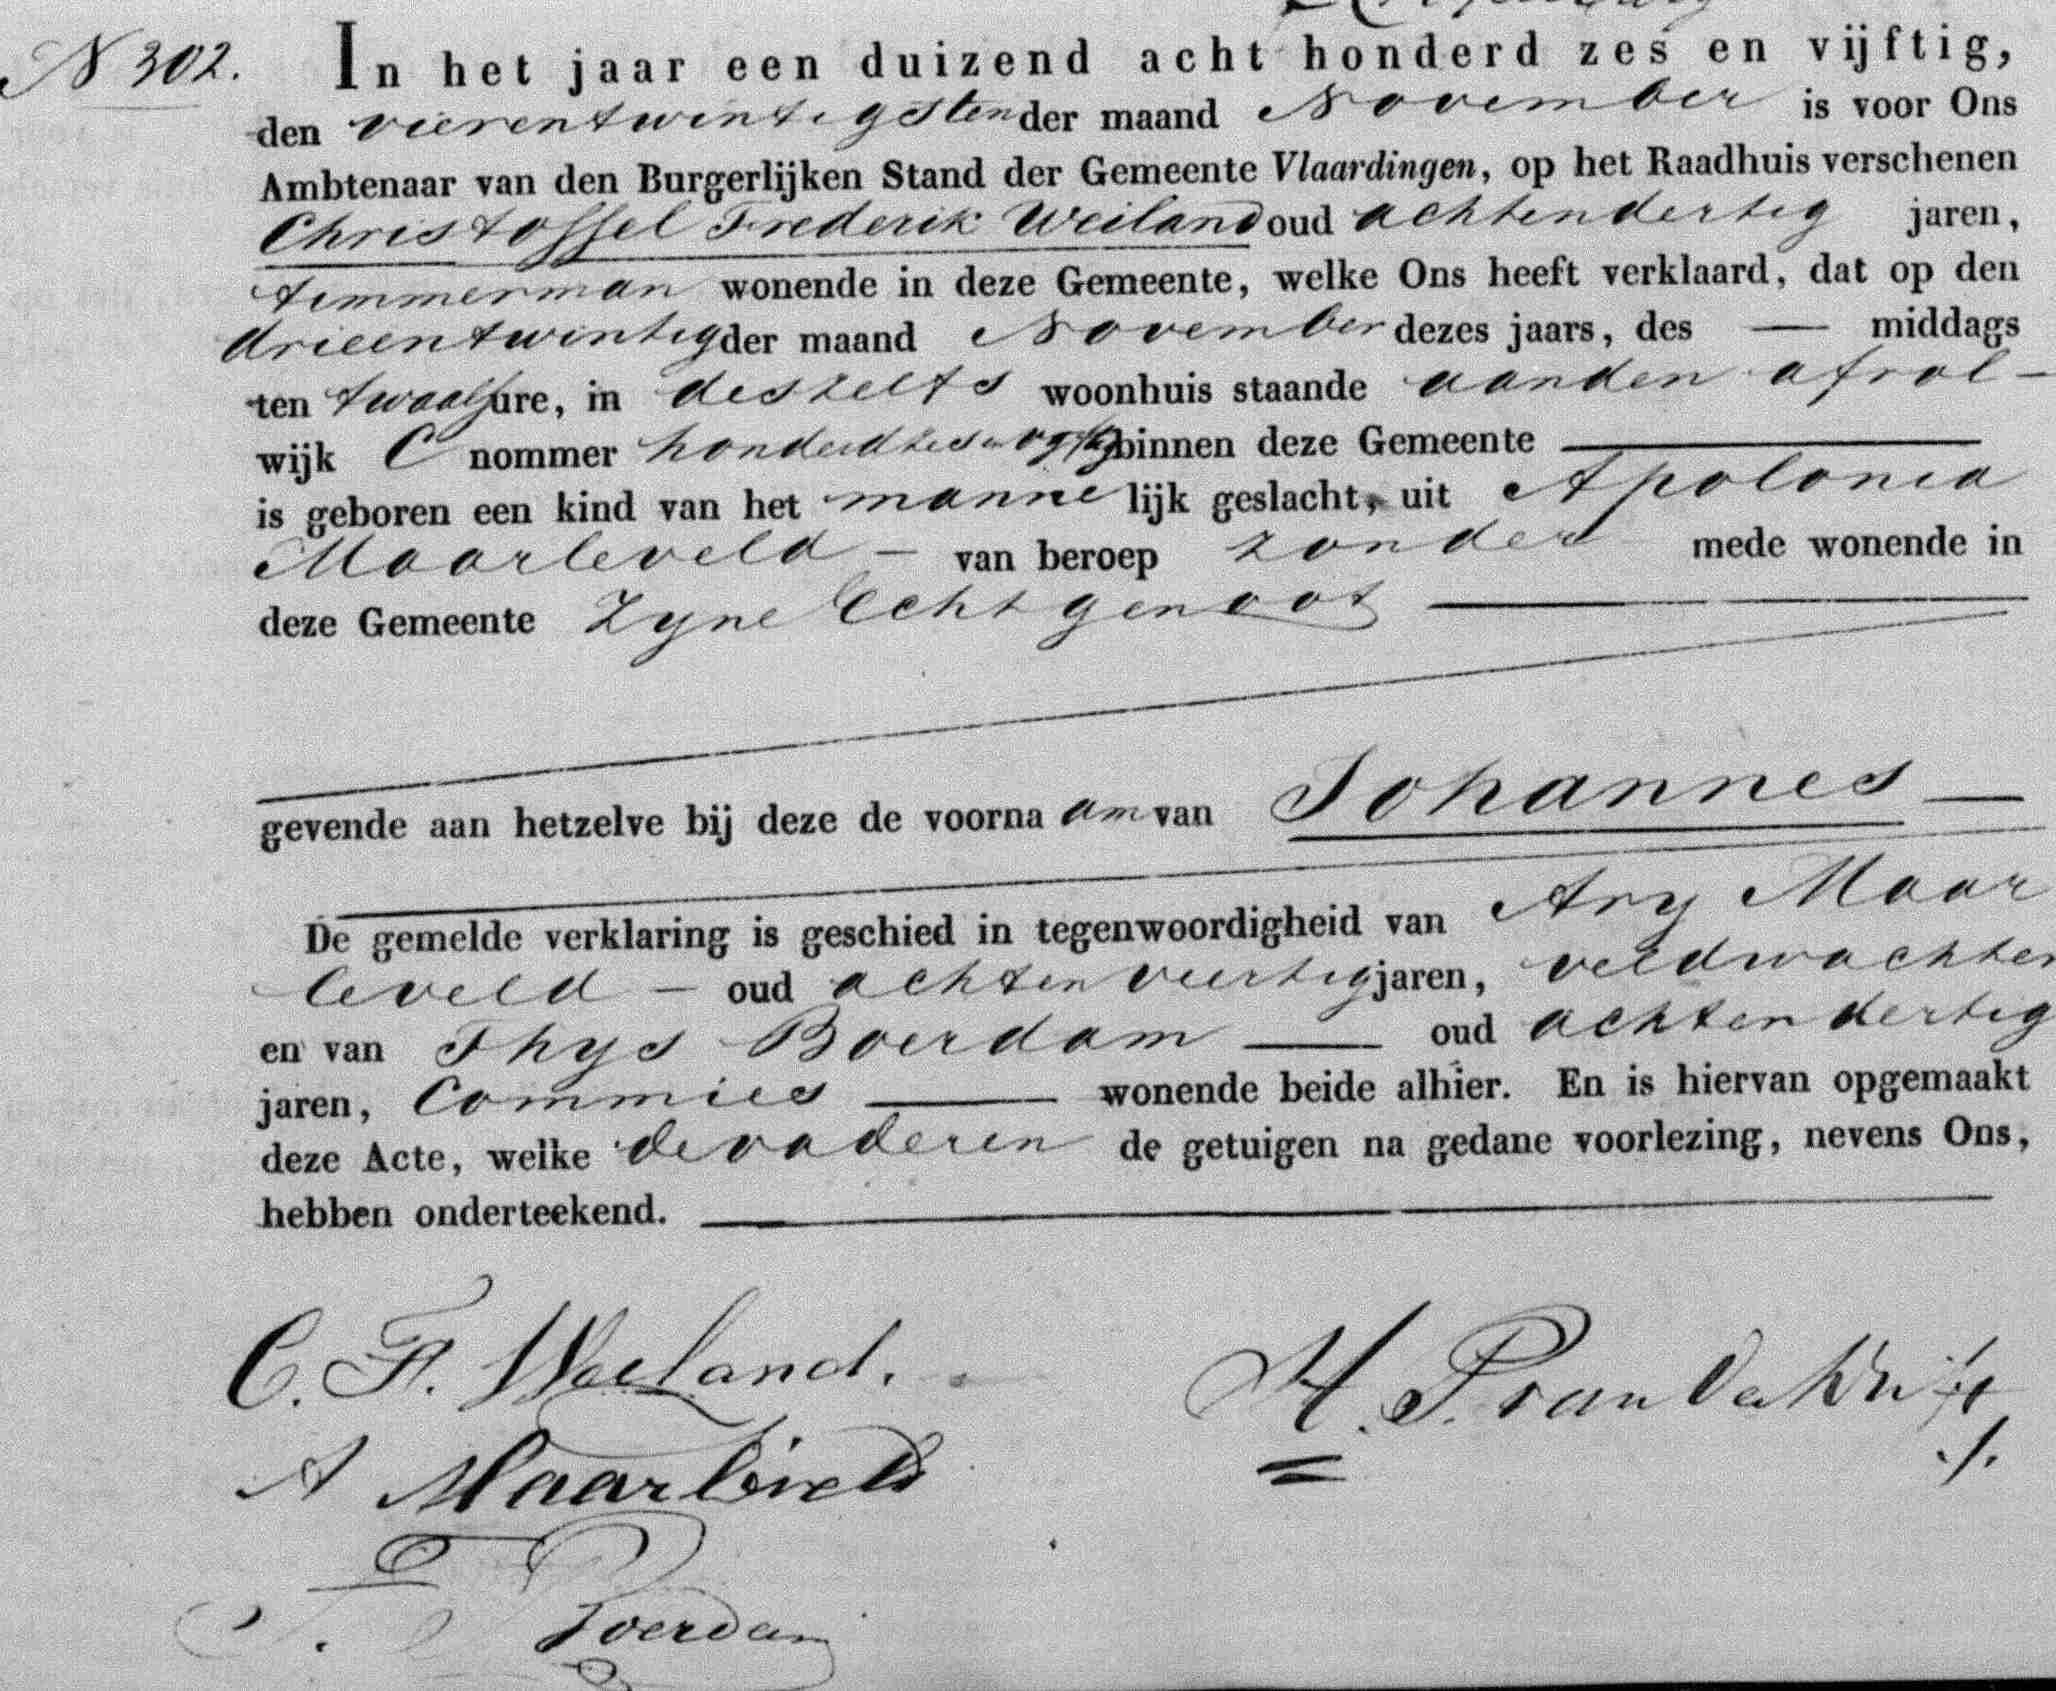 N 302. In het jaar een duizend acht honderd zes en vijftig,
den vierentwintigsten der maand November is voor Ons
Ambtenaar van den Burgerlijken Stand der Gemeente Vlaardingen, op het Raadhuis verschenen
Christoffel Frederik Weiland oud achtendertig jaren,
timmerman wonende in deze Gemeente, welke Ons heeft verklaard, dat op den
drieentwintig der maand November dezes jaars, des — middags
ten twaalf ure, in deszelfs woonhuis staande aan den afrol -
wijk C nommer honderd zes en vyftig binnen deze Gemeente
is geboren een kind van het mannelijk geslacht, uit Apolonia
Maarleveld - van beroep zonder mede wonende in
deze Gemeente Zyne Echtgenoot
gevende aan hetzelve bij deze de voornaam van Johannes —
De gemelde verklaring is geschied in tegenwoordigheid van Ary Maar
leveld - oud achtenveertig jaren, veldwachter
en van Thys Boerdam — oud achtendertig
jaren, Commies — wonende beide alhier. En is hiervan opgemaakt
deze Acte, welke de vader en de getuigen na gedane voorlezing, nevens Ons,
hebben onderteekend.
C. F. Weiland.
H. P. van
A Maarleveld
Boerdam